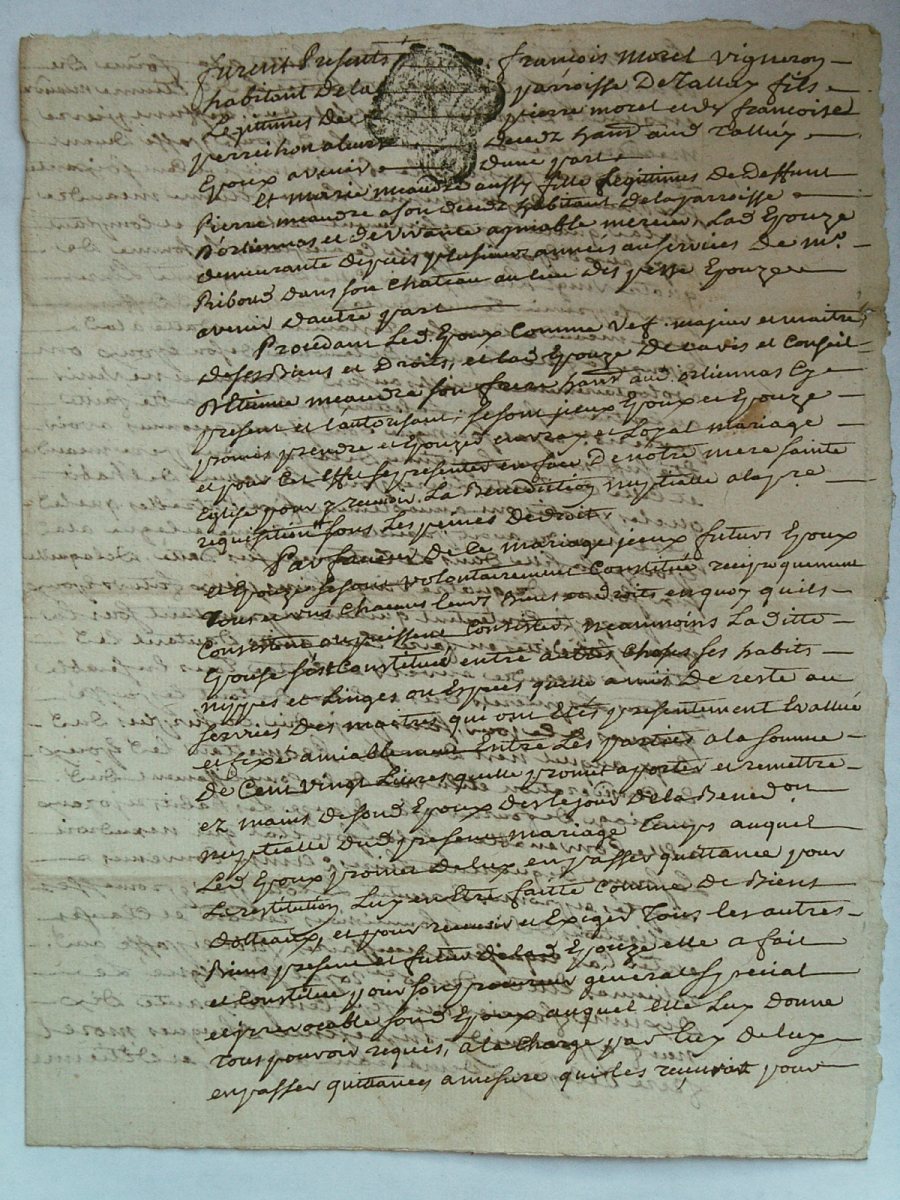 furent Presents françois morel vigneron
habitant de la parroisse De Tallux fils
Legittimes de pierre morel et de françoise
perrichon a leurs Decedz hants aud Talluy
Epoux avenir D'une part
Et marie meaudre aussy fille Legittimes de deffunt
Pierre meaudre a son deced habitant de la parroisse
D'ortiennas et de vivante amiable mercier, Lad Epouze
demeurante depuis plusieurs annéés au services de mr.
Riboud dans son Chateau au lieu des Epouze
avenir d'autre part
Procedant Led Epoux Comme majeur et maitre
de ses Biens et Droits, et lad Epouze De l'avis et Conseil
D'Etienne meaudre son frere hant aud ortiennas Ey
present et l'autorisant, se sont yceux Epoux et Epouze
promis prendre et Epouzer en vray et Loyal mariage
et pour Cet Effet se presenter en face De notre mere sainte
Eglise pour y recevoir La Benediction nuptialle a la pre
requisition sous Les peines de droit,
En faveur de Ce mariage yceux futurs Epoux
et Epouze se sont volontairement Constitué reciproquement
Tous et uns Chacuns leurs Biens et Droits en quoy quils
Consistent ou puissent Consister, neanmoins La ditte
Epouse s'est Constituée entre autres Choses ses habits
nippes et Linges ou Especes quelle a mis De reste au
services Des maitres qui ont Etés presentement Evallué
et fixé amiablement Entre Les parties a la somme
de Cent vingt Livres quelle promet apporter et remettre
ez mains de sond Epoux des le jour de la Benedon
nuptialle dud present mariage temps auquel
Led Epoux promet de luy en passer quittance pour
La restitution Luy en Etre faitte Comme de Biens
dotteaux, et pour recevoir et Exiger Tous les autres
Biens present et futur de lad Epouze elle a fait
et Constitue pour son procureur general et special
et irrevocable sond Epoux auquel elle Luy Donne
Tous pouvoir requis, a la Charge par Luy de luy
en passer quittances a mesure qu'il les recevrat pour